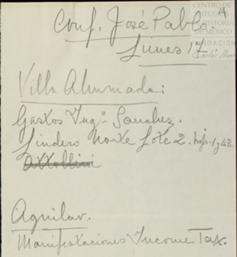 Conf. José Pablo
Lunes 17
Villa Ahumada:
Gastos Ingº Sanchez.
Lindero Norte Lote 2.
Aguilar.
Manifestaciones Income Tax.